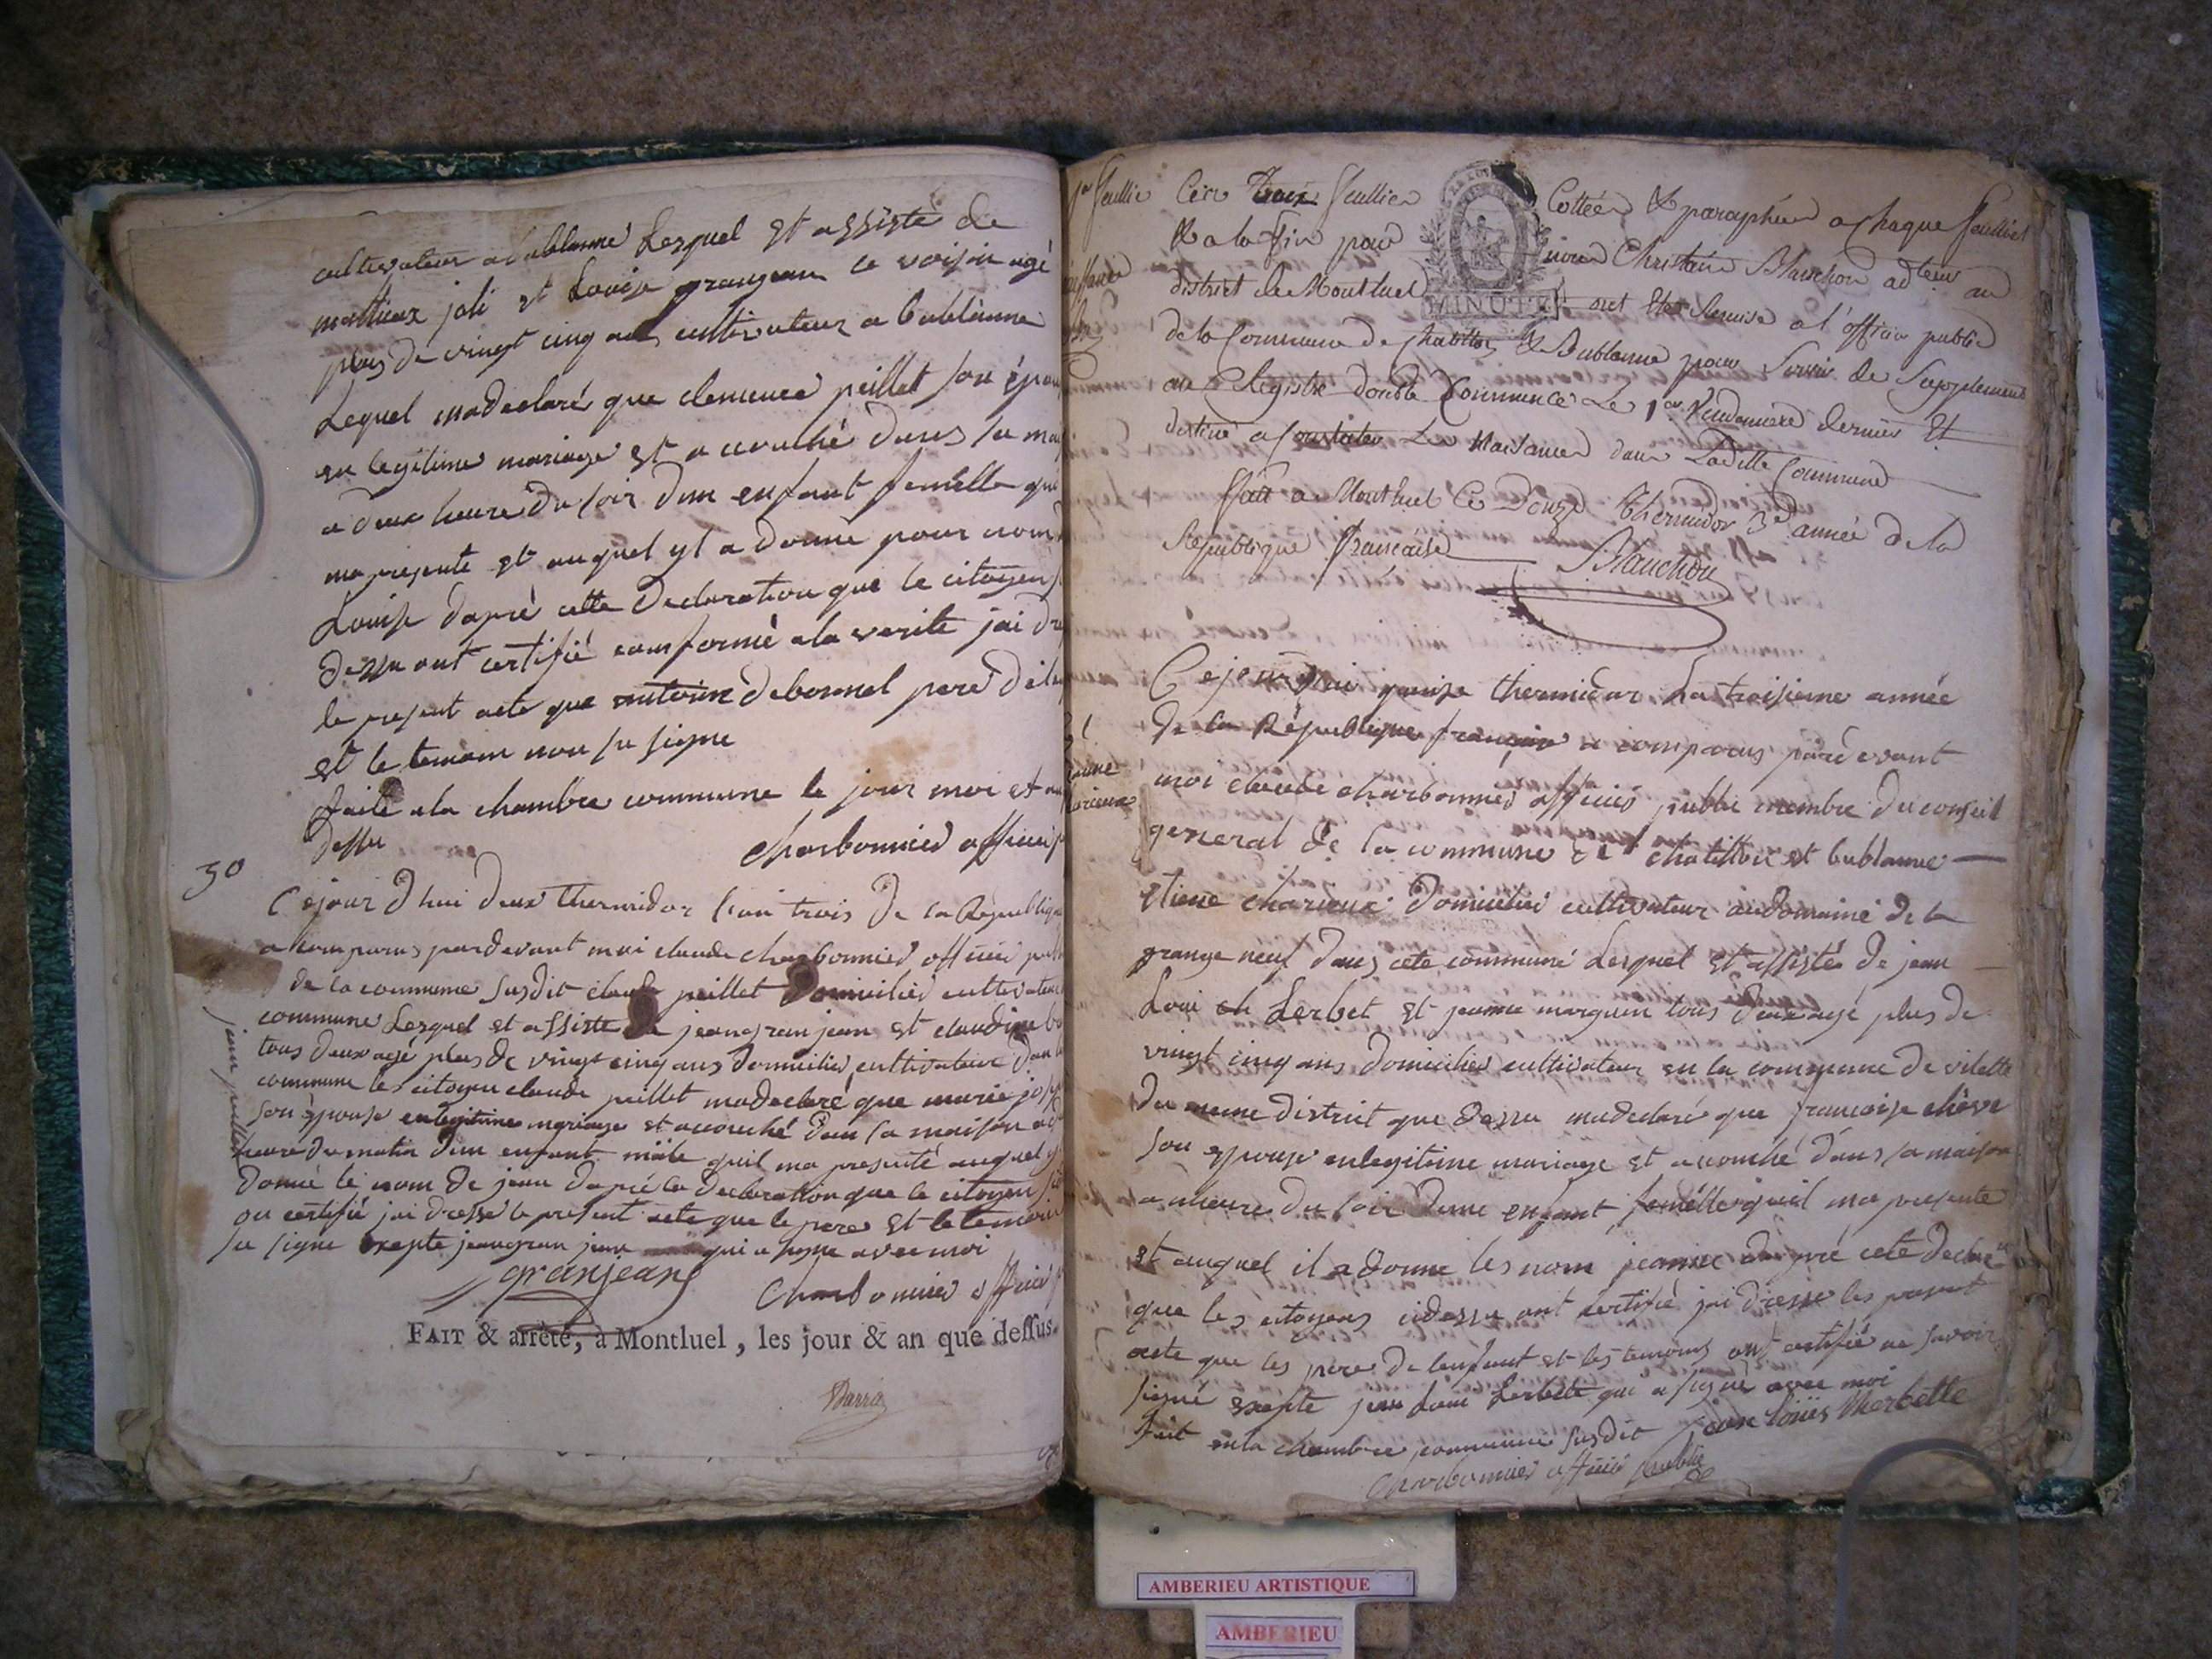 cultivateur a bublanne Lesquel est assisté de
mathieux joli et Louise granjean ce voisin agé
plus de vingt cinq ans cultivateur a bublanne
Lequel ma declaré que clemence peillet son épou
en legitime mariage est a ccouché dans sa mai
a deux heure du soir dun enfant femelle qui
ma presente et auquel yl a donné pour nom
Louise dapré cette declaration que le citoyen
dessu ont certifié comforme a la verite jai dre
le present acte que antoine debonnel pere de l
et le temoin non su signe
faite a la chambre commune le jour moi et an
dessu
charbonnier officier p
30
Cejour dhui deux thermidor l'an trois de la Republique
a comparus pardevant moi claude charbonnier officier pub
de la commune susdit claude peillet domicilier cultivateur
commune Lesquel et assiste de jeangranjean et claudine bo
tous deux agé plus de vingt cinq ans domicilier cultivateur dan
commune le citoyen claude peillet ma declaré que marie jos
son épouse enlegitime mariage et accouché dans sa maison a
heure du matin dun enfant mâle quil ma presenté auquel y
donné le nom de jean dapré la declaration que le citoyen
on certifié jai dressé le present acte que le pere et le temoin
su signe exepte jeangran jean qui a signe avec moi
granjean
Charbonnier officier p
jean peillet
FAIT & arrêté, à Montluel, les jour & an que dessus.
1er feuillet
Ces trois feuillets Cottées & paraphées a chaque feuillet
& a la fin par nous Christin Blanchon adteur au
district de Montluel
MINUTE
ont été Remise a l'officier public
de la Commune de Chatillon & Bublanne pour Servir de Supplement
au Registre double Commencé Le 1er Vendemiere dernier Et
destiné a Constater Les Naisances dans Laditte Commune
fait a Montluel Ce Douze thermidor 3e année de la
Republique francaise
Blanchon
Cejourdhui quinze thermidor La troisieme année
de la République françoise a comparus pardevant
moi claude charbonnier officier public membre du conseil
general de la commune de chatillon et bublanne
etiene charieux domicilier cultivateur audomaine de la
grange neuf dans cete commune Lesquel est assistés de jean
Loui ch Lerbet et jeanne marguin tous deux agé plus de
vingt cinq ans domicilier cultivateur en la commune de vilette
du meme district que dessu ma declaré que francoise chêve
son epouse enlegitime mariage et accouché dans sa maison
a neure du soir dune enfant femelle quil ma presente
et auquel il a donne les nom jeanne dapré cete declaron
que les citoyens cidessu ont certifié jai dresse les present
acte que les pere de lenfant et les temoins ont certifié ne savoir
signé exepte jean Loui Lerbete qui a signé avec moi
fait enla chambre commune susdit jean louis Mherbette
Charbonnier officier public
AMBERIEU ARTISTIQUE
AMBERIEU